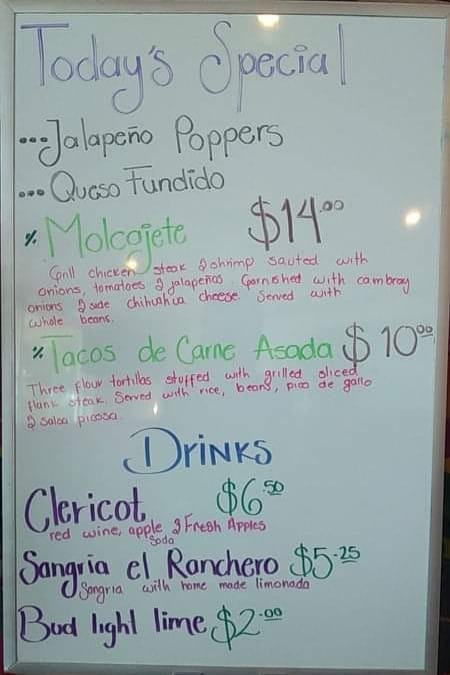 Today's Special
...Jalapeño Poppers
...Queso Fundido
% Molcajete $14.00
Grill chicken steak & shrimp sauted with
onions, tomatoes & jalapeños. Garnished with cambray
onions & side chihuahua cheese. Served with
whole beans.
% Tacos de Carne Asada $10.00
Three flour tortillas stuffed with grilled sliced
flank steak. Served with rice, beans, pico de gallo
& salsa picosa.
Drinks
Clericot $6.50
red wine, apple & Fresh Apples
Soda
Sangria el Ranchero $5.25
Sangria with home made limonada
Bud light lime $2.00